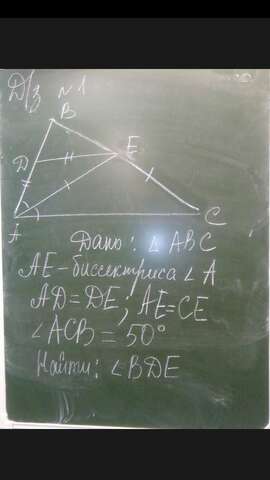 Д/з №1
B
D
E
A
C
Дано: ∠ABC
AE-биссектриса ∠A
AD=DE; AE=CE
∠ACB=50°
Найти: ∠BDE